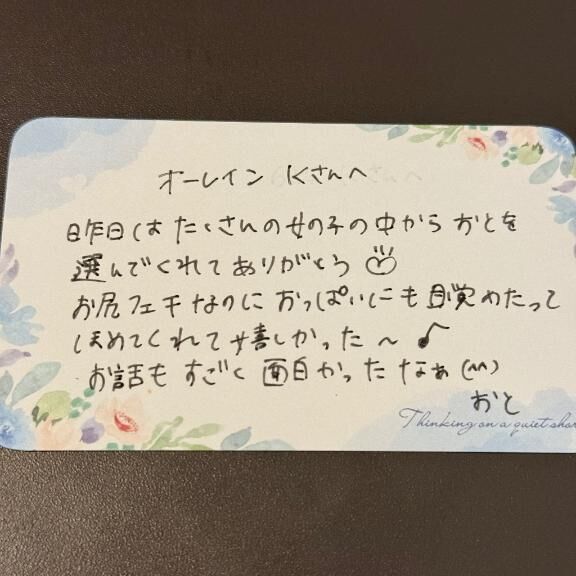 オールイン Kさんへ
昨日は たくさんの女の子の中から おとを
選んでくれて ありがとう
お尻フェチなのに おっぱいにも 目覚めたって
ほめてくれて 嬉しかった〜♪
お話も すごく 面白かったなぁ (^^)
おと
Thinking on a quiet shor